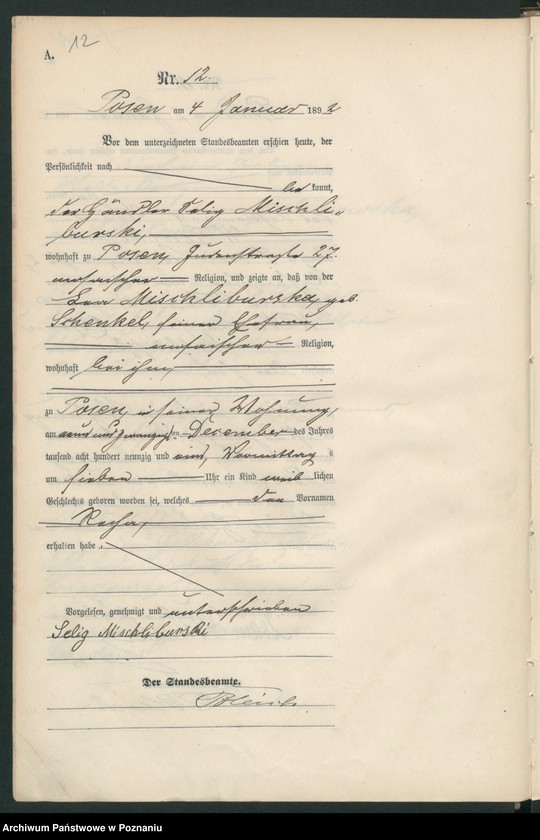 A.
12
Nr. 12.
Posen am 4 Januar 1892
Vor dem unterzeichneten Standesbeamten erschien heute, der
Persönlichkeit nach
bekannt,
der Händler Selig Mischli-
burski,
wohnhaft zu Posen, Judenstraße 27.
mosaischer Religion, und zeigte an, daß von der
Lea Mischliburska, geb.
Schenkel, seiner Ehefrau,
mosaischer Religion,
wohnhaft bei ihm,
zu Posen, in seiner Wohnung,
am neun und zwanzigsten December des Jahres
tausend acht hundert neunzig und eins, Vormittags
um sieben Uhr ein Kind weiblichen
Geschlechts geboren worden sei, welches den Vornamen
erhalten habe.
Vorgelesen, genehmigt und unterschrieben
Selig Mischliburski
Der Standesbeamte.
Archiwum Państwowe w Poznaniu